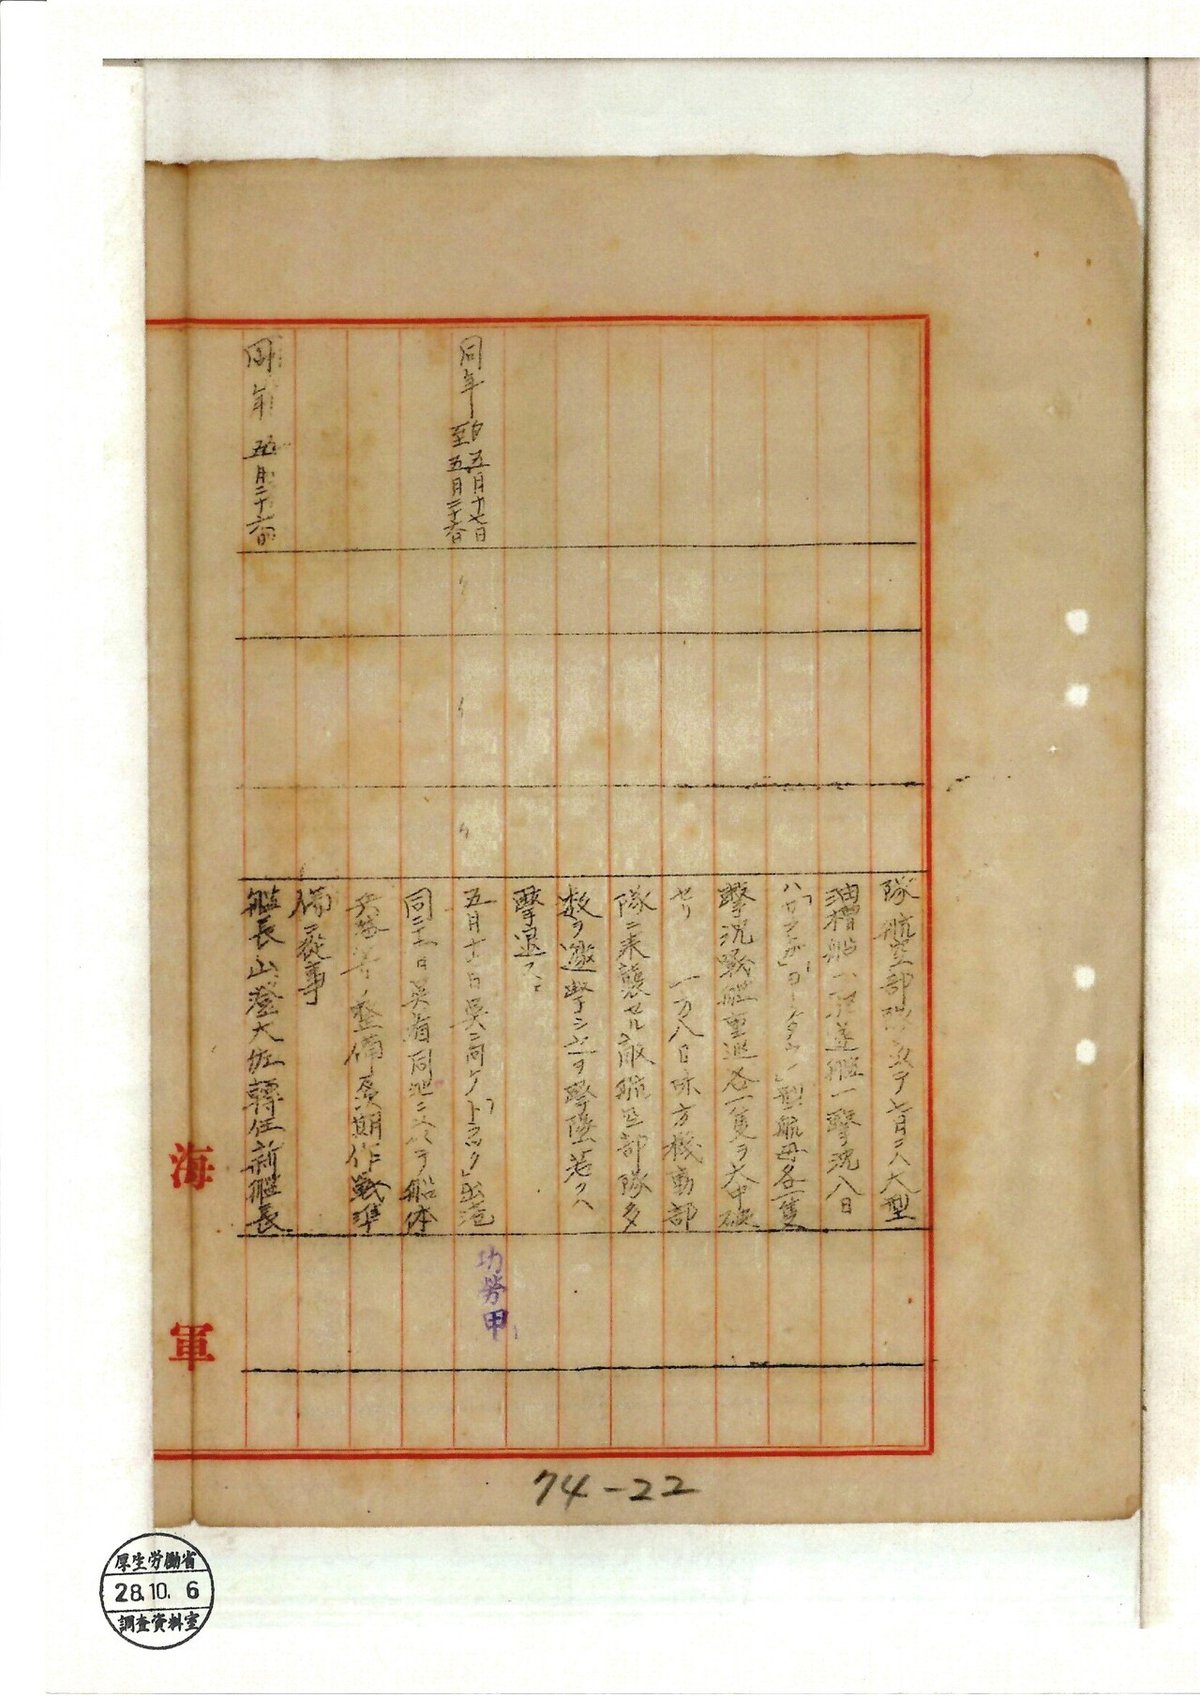 隊航空部隊ヲ以テ七日ヲハ大型
油槽船一駆逐艦一撃沈八日
ハ「サラトガ」「ヨークタウン」型航母各一隻
撃沈戦艦重巡各一隻ヲ大中破
セリ 一方八日味方機動部
隊ニ来襲セル敵航空部隊多
数ヲ邀撃シ之ヲ撃墜若クハ
撃退ス
同年 自五月十七日
至五月二十六日
五月十七日呉ニ向ケ「トラック」出港
同二十一日呉着同地ニ於テ船体
兵器等ノ整備及期作戦準
備ニ従事
功労甲
同年 五月二十六日
艦長山澄大佐轉任新艦長
海軍
74-22
厚生労働省
28.10.6
調査資料室